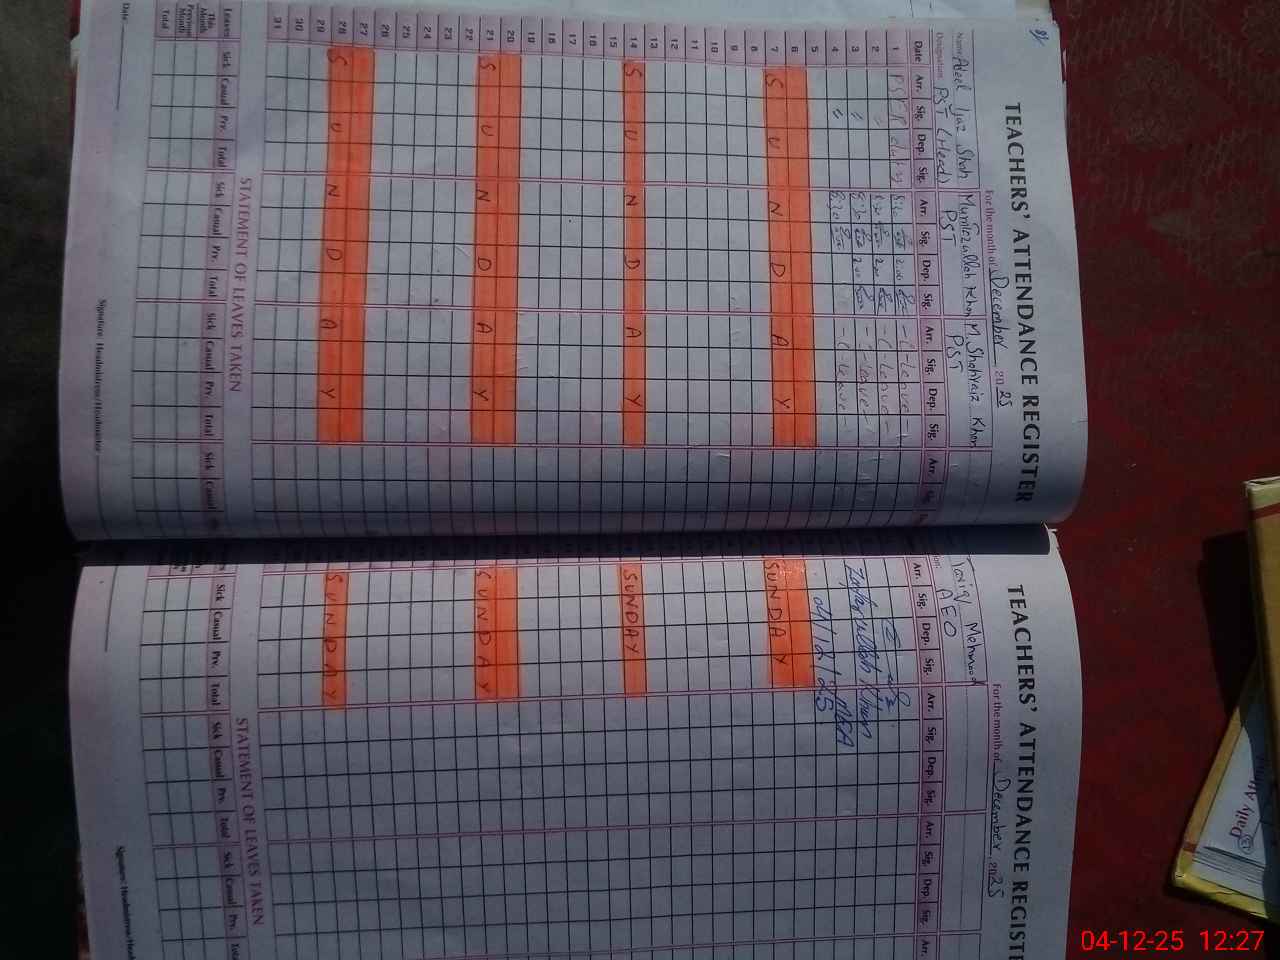 TEACHERS' ATTENDANCE REGISTER
For the month of December 2025
Name Adeel Ijaz Shah
Mumtezullah Khan
M. Shahvaiz Khan
Designation: PST (Head)
PST
PST
Date Arr. Sig. Dep. Sig. Arr. Sig. Dep. Sig. Arr. Sig. Dep. Sig. Arr. Sig.
1 duty 2:00 -C-Leave-
2 〃 8:30 2:00 -C-Leave-
3 〃 8:30 2:00 -C-Leave-
4 〃 8:30 -C-Leave-
5
6
7 SUNDAY
8
9
10
11
12
13
14 SUNDAY
15
16
17
18
19
20
21 SUNDAY
22
23
24
25
26
27
28 SUNDAY
29
30
31
STATEMENT OF LEAVES TAKEN
Leaves Sick Casual Prv. Total Sick Casual Prv. Total Sick Casual Prv. Total Sick Casual
This Month
Previous Month
Total
Date:
Signature: Headmistress/Headmaster
TEACHERS' ATTENDANCE REGIST
For the month of December 2025
Tariq Mehmood
AEO
Arr. Sig. Dep. Sig. Arr. Sig. Dep. Sig. Arr. Sig. Dep. Sig. Arr.
Zafarullah Khan
04/12/25
SUNDAY
SUNDAY
SUNDAY
SUNDAY
STATEMENT OF LEAVES TAKEN
Sick Casual Prv. Total Sick Casual Prv. Total Sick Casual Prv.
Signature: Headmistress/Head
Daily
04-12-25 12:27